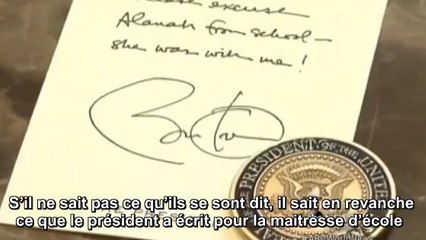 excuse
Alanah from school –
she was with me!
THE PRESIDENT OF THE UNITED
S'il ne sait pas ce qu'ils se sont dit, il sait en revanche
ce que le président a écrit pour la maitresse d'école